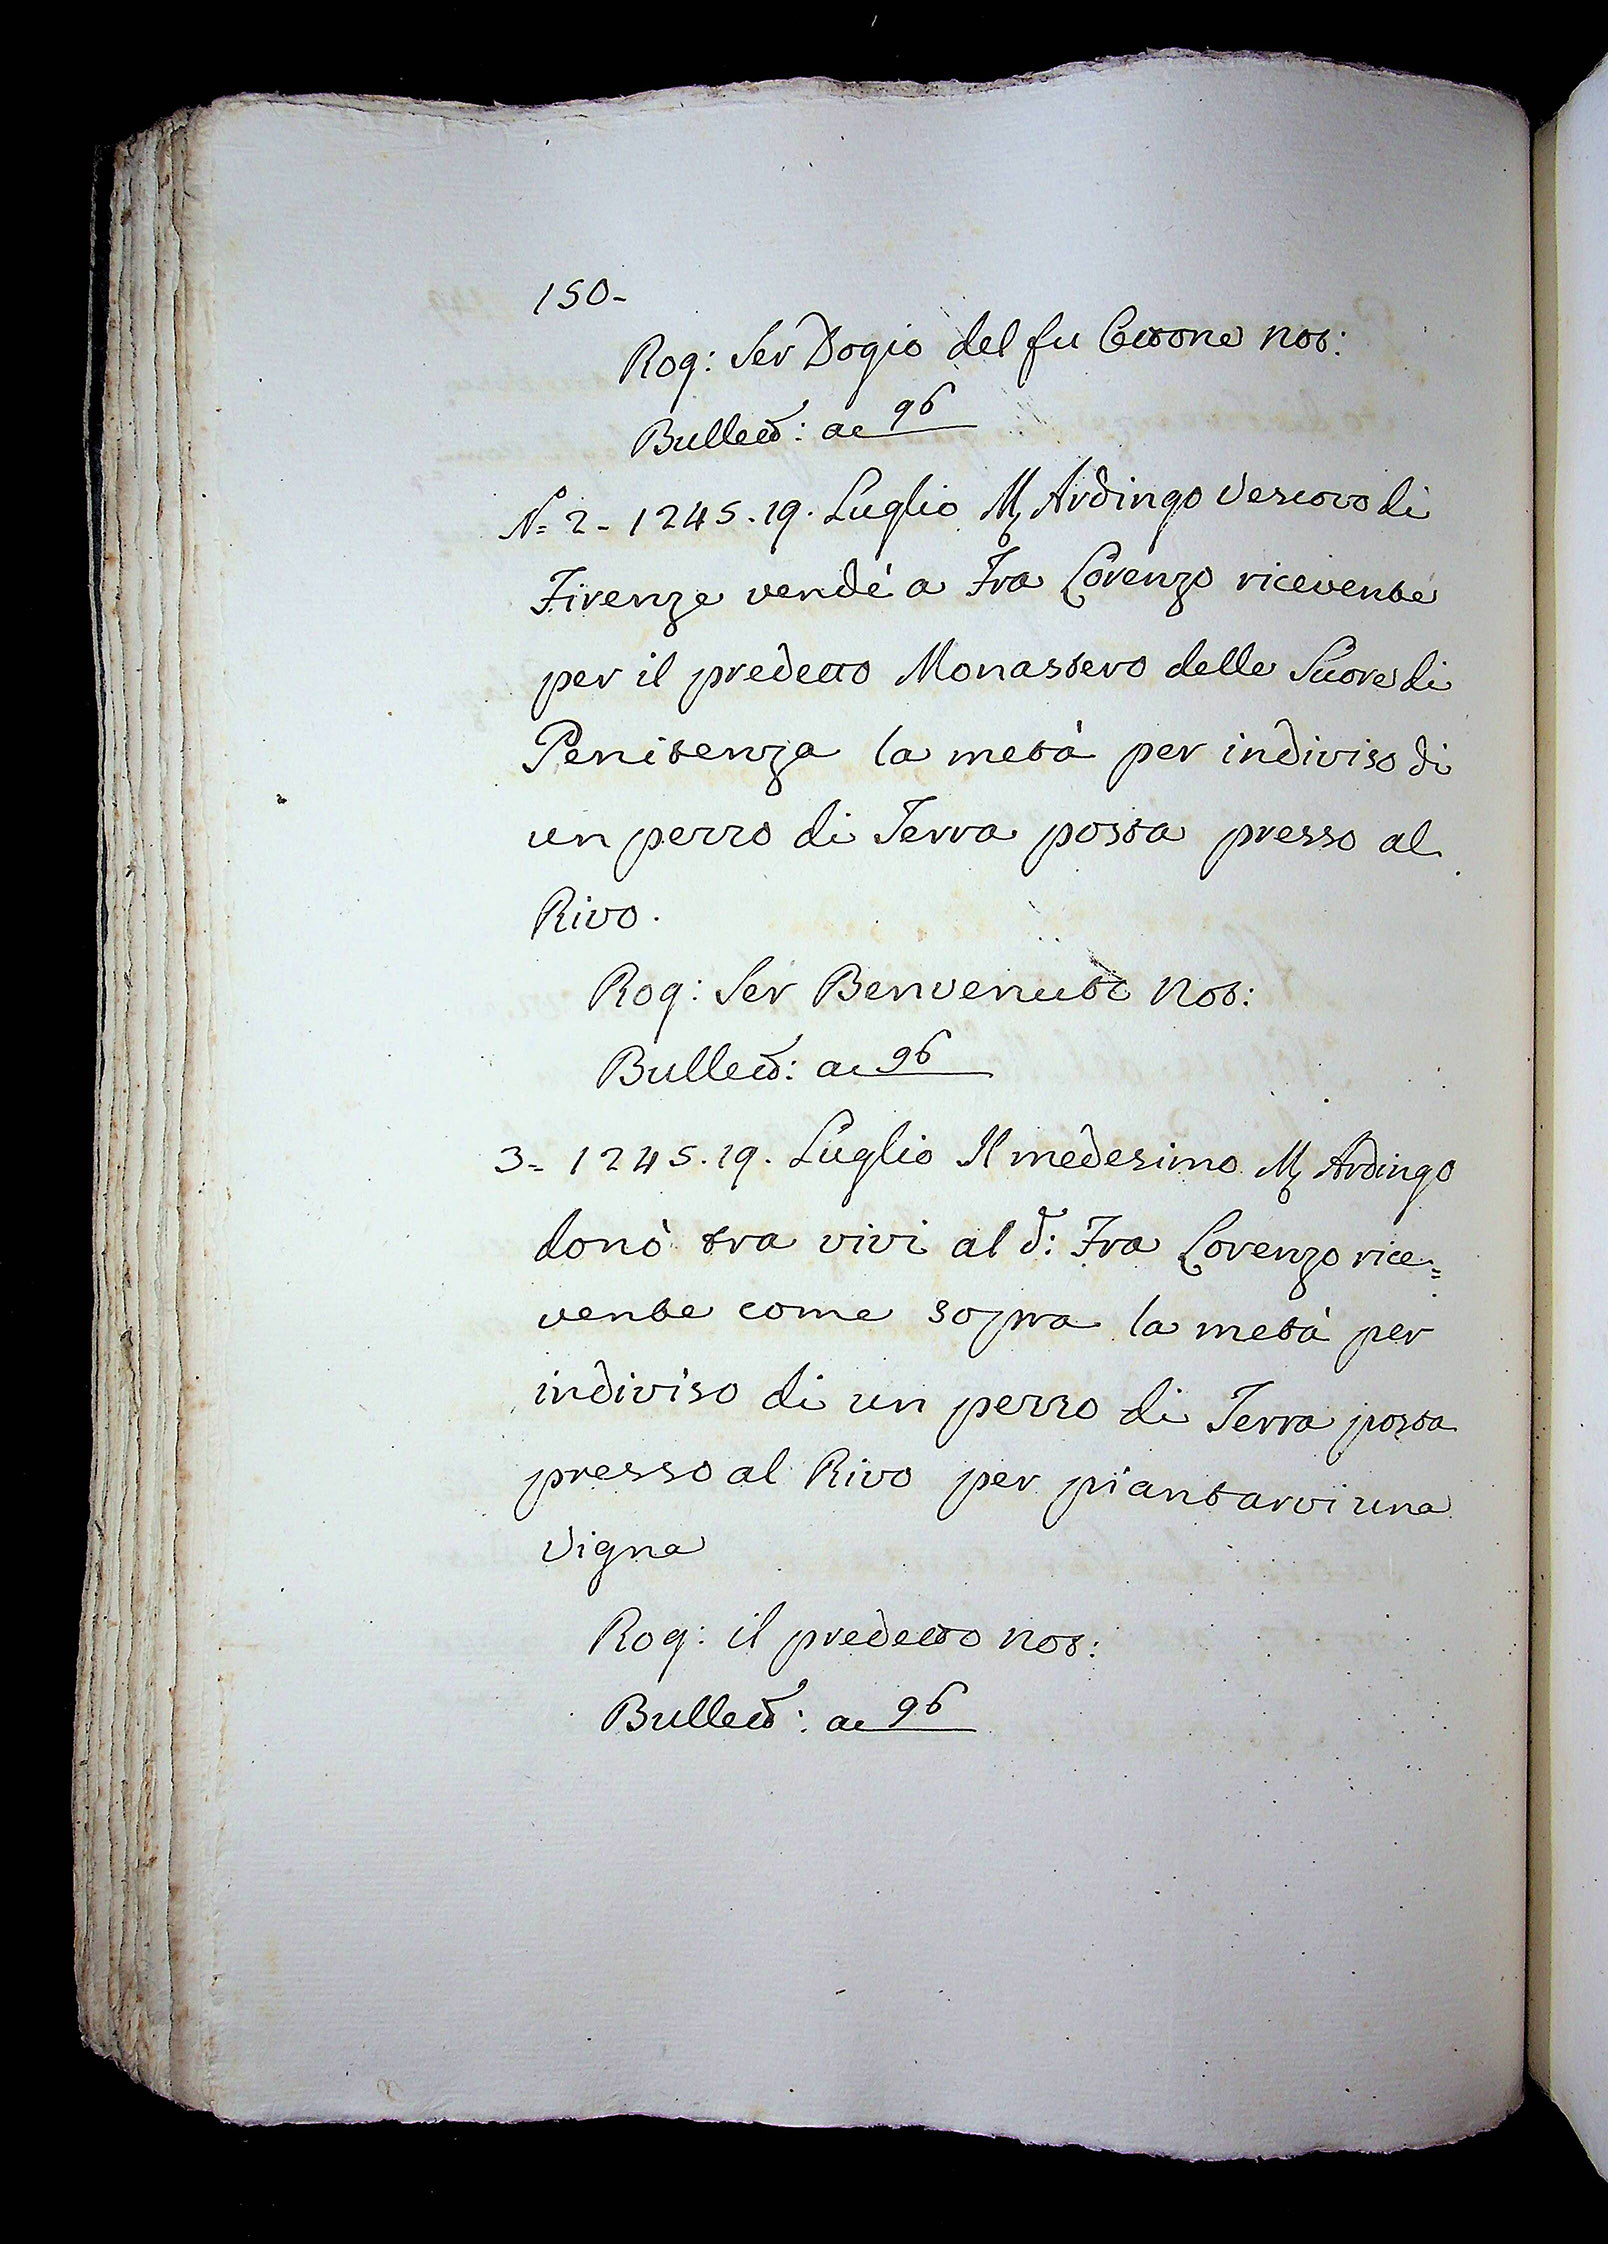 150-
Rog: Ser Dogio del fu Cettone Not:
Bullett: ac 96
N= 2- 1245. 19. Luglio M. Ardingo Vescovo di
Firenze vendé a Fra Lorenzo ricevente
per il predetto Monastero delle Suore di
Penitenza la metà per indiviso di
un pezzo di Terra posta presso al
Rivo.
Rog: Ser Benvenuto Not:
Bullett: ac 96
3= 1245. 19. Luglio Il medesimo M. Ardingo
donò tra vivi al d: Fra Lorenzo rice=
vente come sopra la metà per
indiviso di un pezzo di Terra posta
presso al Rivo per piantarvi una
Vigna
Rog: il predetto Not:
Bullett: ac 96